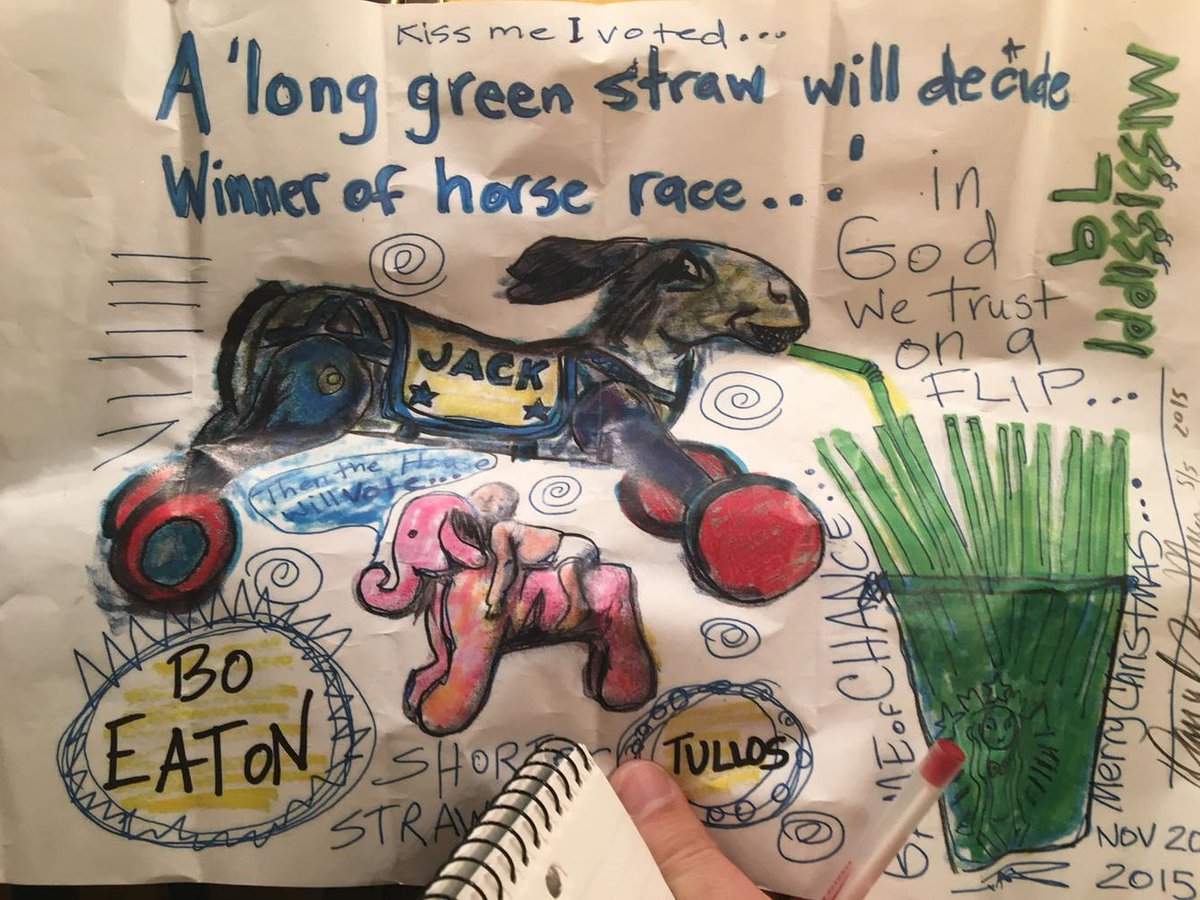 Kiss me I voted...
A 'long green straw will decide
Winner of horse race...
in
God
we trust
on a
FLIP...
MISSISSIPPI
JACK
Then the House
will vote...
BO
EATON
TULLOS
SHORT
STRAW
OF CHANCE...
Merry Christmas...
NOV 20
2015
2015